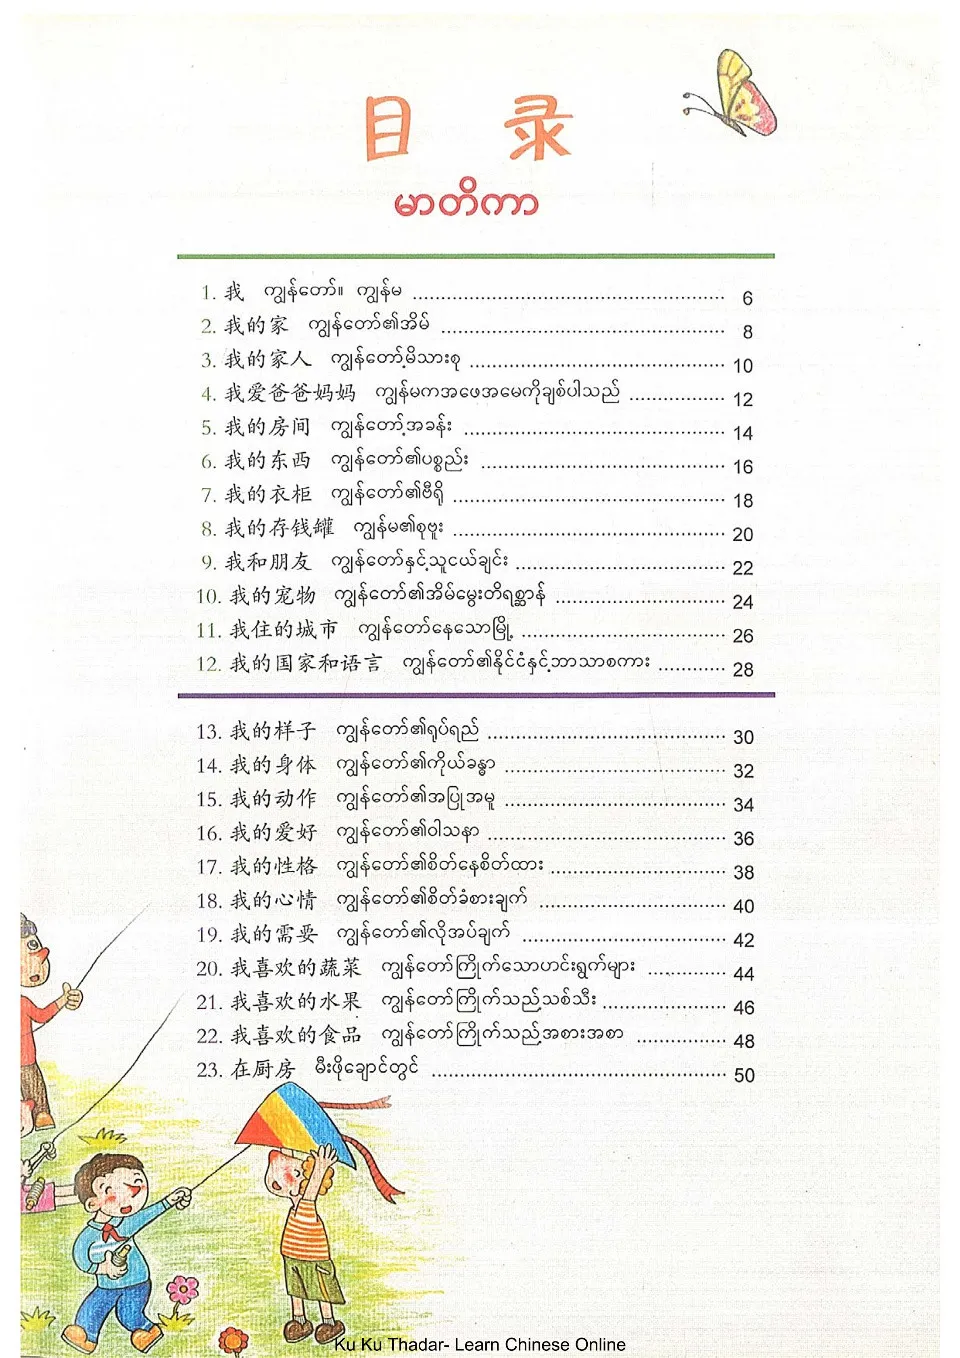 目 录
မာတိကာ
1. 我 ကျွန်တော်။ ကျွန်မ ........................................................ 6
2. 我的家 ကျွန်တော်၏အိမ် ................................................... 8
3. 我的家人 ကျွန်တော့်မိသားစု .............................................. 10
4. 我爱爸爸妈妈 ကျွန်မကအဖေအမေကိုချစ်ပါသည် ................. 12
5. 我的房间 ကျွန်တော့်အခန်း ............................................... 14
6. 我的东西 ကျွန်တော်၏ပစ္စည်း ............................................ 16
7. 我的衣柜 ကျွန်တော်၏ဗီရို ................................................. 18
8. 我的存钱罐 ကျွန်မ၏စုဗူး ................................................. 20
9. 我和朋友 ကျွန်တော်နှင့်သူငယ်ချင်း ...................................... 22
10. 我的宠物 ကျွန်တော်၏အိမ်မွေးတိရစ္ဆာန် ............................... 24
11. 我住的城市 ကျွန်တော်နေသောမြို့ ..................................... 26
12. 我的国家和语言 ကျွန်တော်၏နိုင်ငံနှင့်ဘာသာစကား ............ 28
13. 我的样子 ကျွန်တော်၏ရုပ်ရည် ........................................... 30
14. 我的身体 ကျွန်တော်၏ကိုယ်ခန္ဓာ ........................................ 32
15. 我的动作 ကျွန်တော်၏အပြုအမူ ........................................ 34
16. 我的爱好 ကျွန်တော်၏ဝါသနာ ........................................... 36
17. 我的性格 ကျွန်တော်၏စိတ်နေစိတ်ထား ................................ 38
18. 我的心情 ကျွန်တော်၏စိတ်ခံစားချက် .................................. 40
19. 我的需要 ကျွန်တော်၏လိုအပ်ချက် ..................................... 42
20. 我喜欢的蔬菜 ကျွန်တော်ကြိုက်သောဟင်းရွက်များ .............. 44
21. 我喜欢的水果 ကျွန်တော်ကြိုက်သည့်သစ်သီး ...................... 46
22. 我喜欢的食品 ကျွန်တော်ကြိုက်သည့်အစားအစာ ................ 48
23. 在厨房 မီးဖိုချောင်တွင် ..................................................... 50
Ku Ku Thadar- Learn Chinese Online